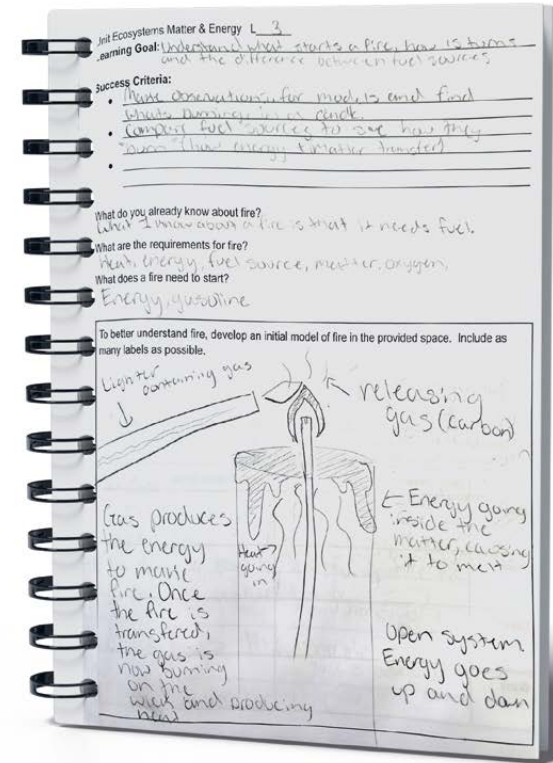 Unit Ecosystems Matter & Energy L 3
Learning Goal: Understand what starts a fire, how is turns
and the difference between fuel sources
Success Criteria:
• Make observations, for models and find
whats burning in a candle.
• Compare fuel sources to see how they
"burn" (how energy & matter transfer)
•
What do you already know about fire?
What I know about a fire is that it needs fuel.
What are the requirements for fire?
Heat, energy, fuel source, matter, oxygen,
What does a fire need to start?
Energy, gasoline
To better understand fire, develop an initial model of fire in the provided space. Include as
many labels as possible.
Lighter containing gas
releasing
gas (carbon)
Gas produces
the energy
to make
fire. Once
the fire is
transfered,
the gas is
now burning
on the
wick and producing
heat
Heat
going
in
Energy going
inside the
matter, causing
it to melt
Open system
Energy goes
up and down